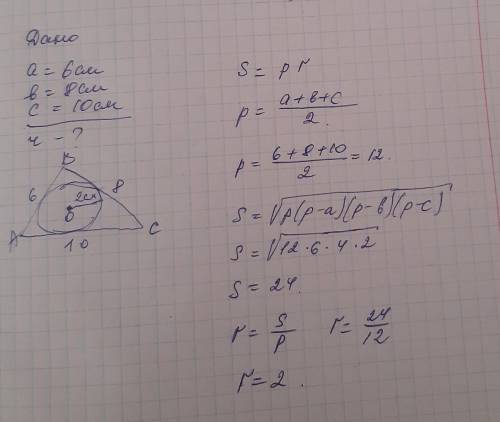 Дано
a = 6см
в = 8см
c = 10см
r - ?
B
6
8
2см
O
A
10
C
S = p r
p = \frac{a+в+c}{2}
p = \frac{6+8+10}{2} = 12.
S = √(p(p-a)(p-в)(p-c))
S = √(12·6·4·2)
S = 24.
r = \frac{S}{p} r = \frac{24}{12}
r = 2.